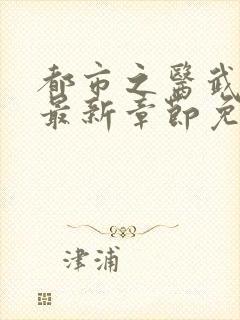 都市之医武
最新章节免
津浦